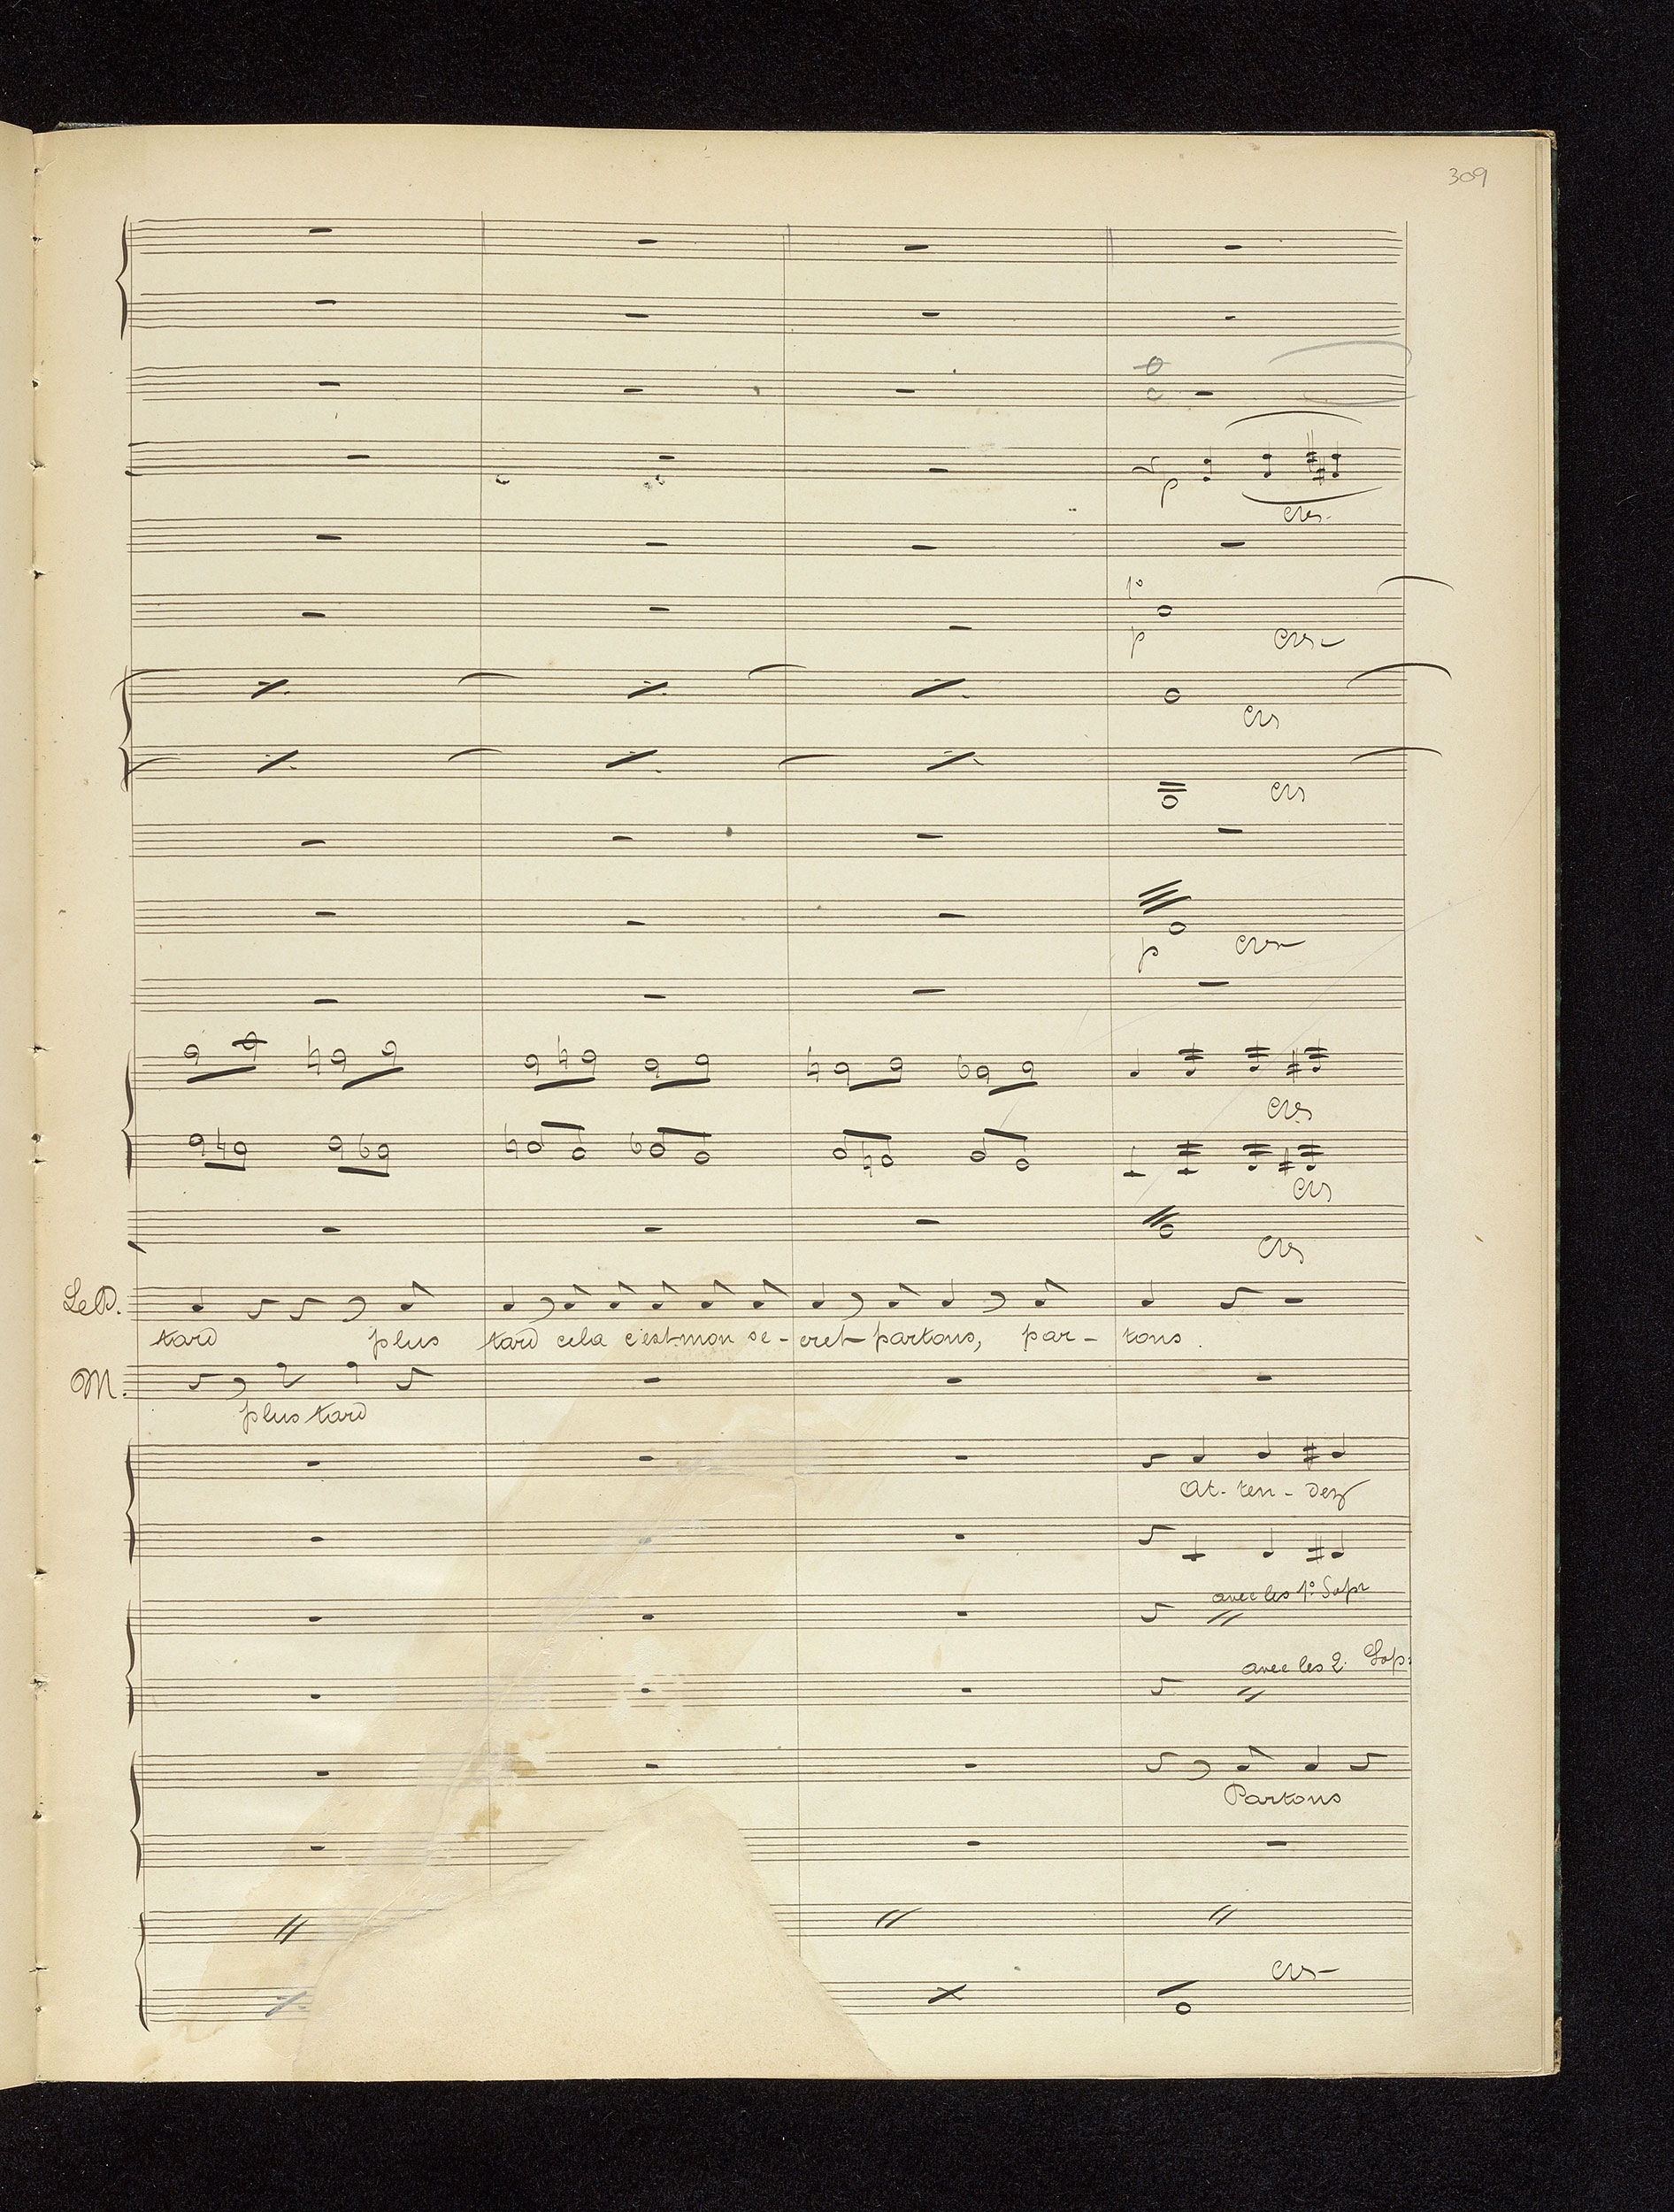 309
p
cres.
1º
p cres
cres
cres
p cres
cres
cres
cres
Le P.
tard plus tard cela c'est mon se-cret partons, par-tons.
M.
plus tard
At-ten-dez
avec les 1º Sopr
avec les 2. Sop:
Partons
cres